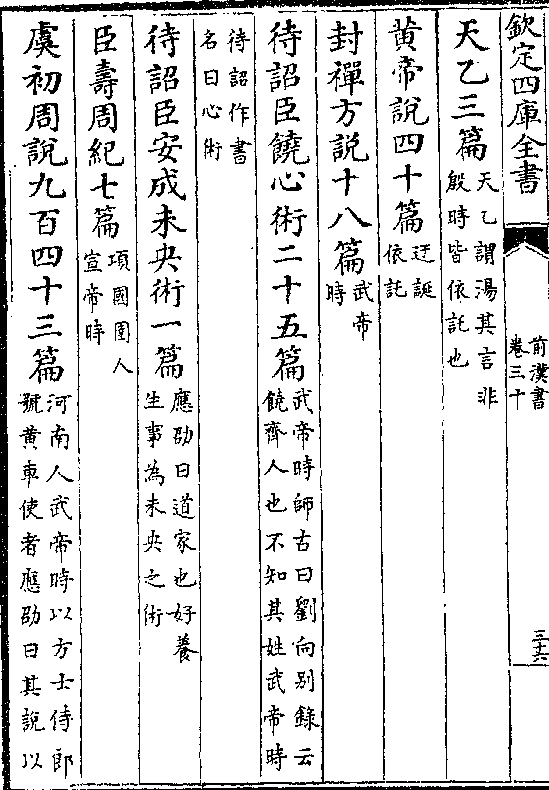 欽定四庫全書
前漢書
卷三十
三十六
天乙三篇天乙謂湯其言非
殷時皆依託也
黄帝說四十篇迂誕
依託
封禪方說十八篇武帝
時
待詔臣饒心術二十五篇武帝時師古曰劉向别錄云
饒齊人也不知其姓武帝時
待詔作書
名曰心術
待詔臣安成未央術一篇應劭曰道家也好養
生事為未央之術
臣壽周紀七篇項國圉人
宣帝時
虞初周說九百四十三篇河南人武帝時以方士侍郎
號黄車使者應劭曰其說以